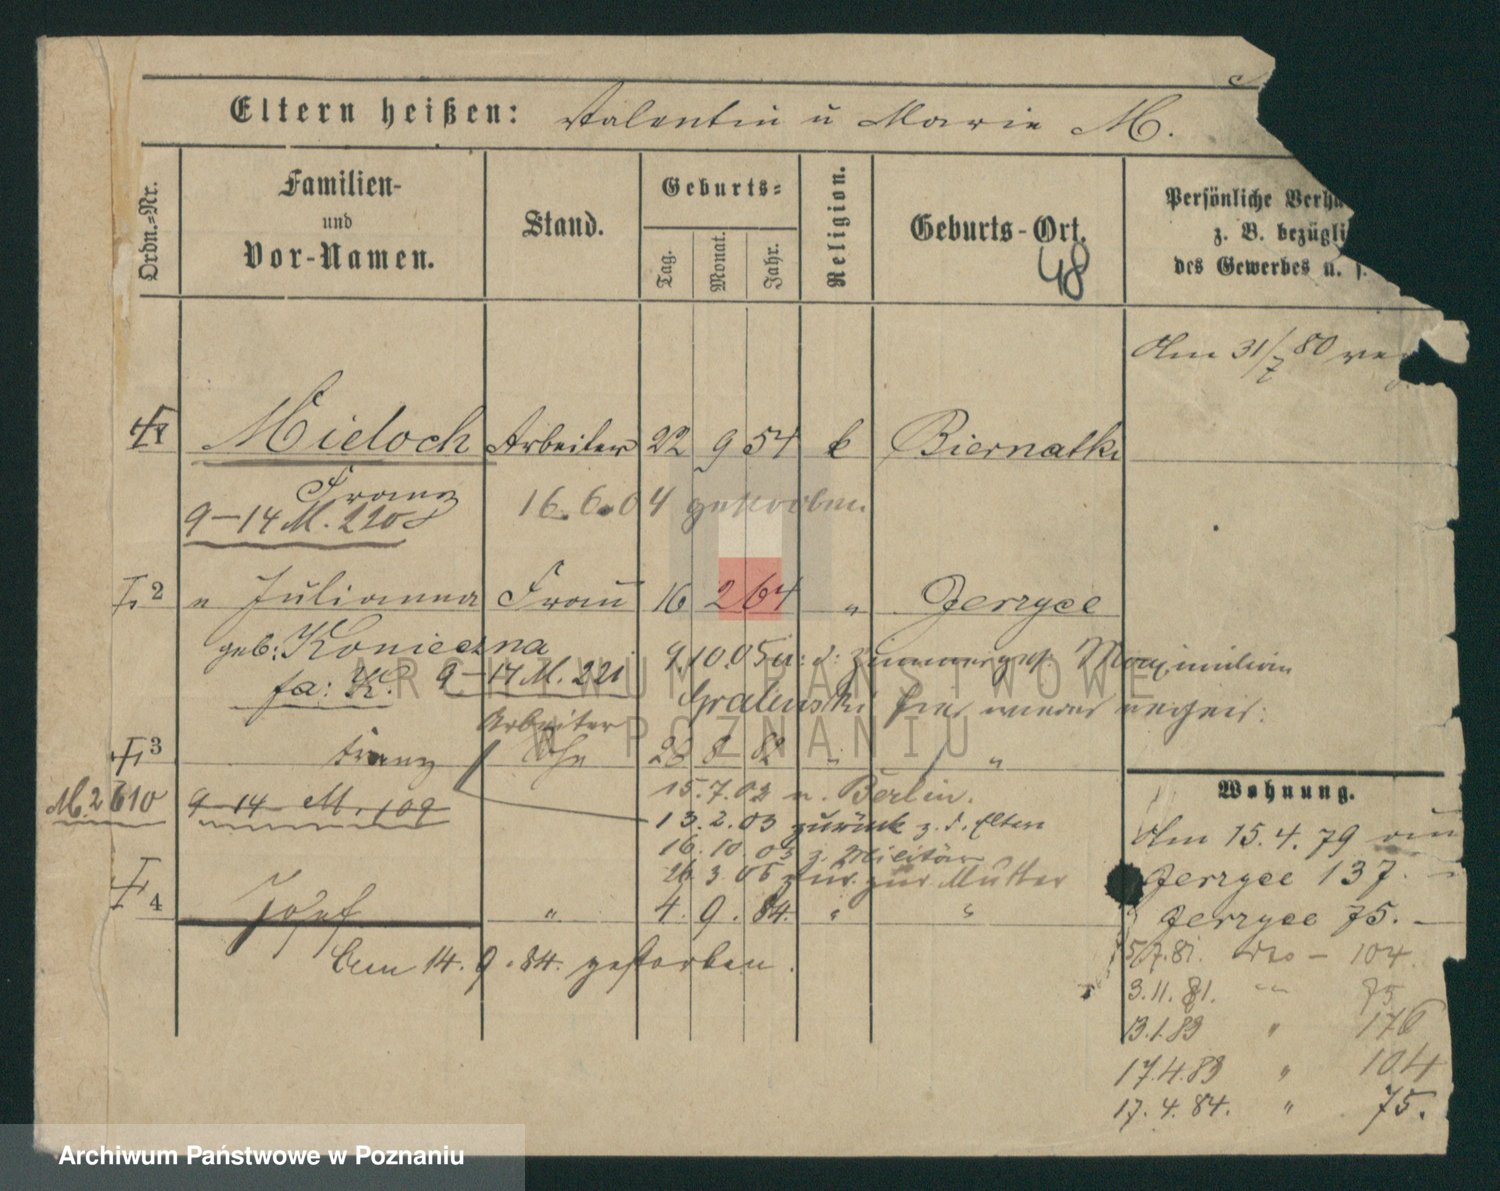 Eltern heißen: Valentin u Marie M.
Ordn.-Nr.
Familien-
und
Vor-Namen.
Stand.
Geburts-
Tag. Monat. Jahr.
Religion.
Geburts-Ort.
48
Persönliche Verhä
z. B. bezügli
des Gewerbes u. s.
Am 31/7 80
Mieloch Arbeiter 22 9 54 k Biernatki
Franz
9-14 M. 220
16.6.04 gestorben
I 2 " Julianna Frau 16 2 64 " Jerzyce
geb: Konieczna
9.10.05 Maximilian
fa: K. 9-14 M. 221
Gralinski
Arbeiter
3 Franz 28 8 82 " "
M. 2610 9-14 M. 109
15.7.02 n. Berlin.
13.2.03 zurück z. d. Eltern
16.10.03 z. Militär
26.3.05 zur Mutter
I 4 Josef " 4. 9. 84. " "
Am 14. 9. 84. gestorben.
Wohnung.
Am 15.4.79
Jerzyce 137.
Jerzyce 75.
5/7.81. dto - 104.
3.11.81. " 75
13.1.83 " 176
17.4.83 " 104
17.4.84. " 75.
ARCHIWUM PAŃSTWOWE
W POZNANIU
Archiwum Państwowe w Poznaniu